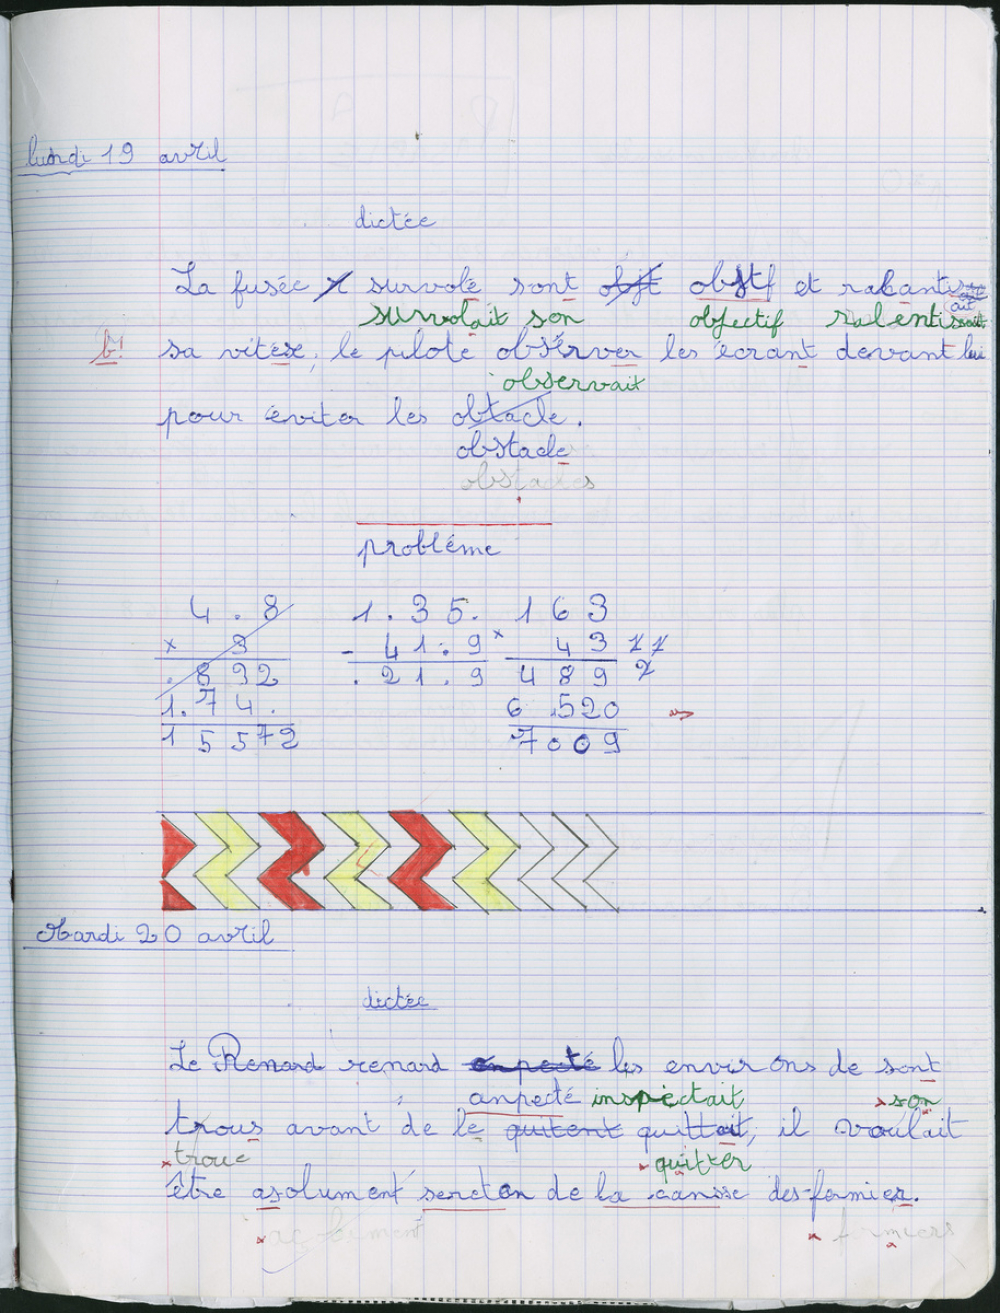 lundi 19 avril
dictée
La fusée survolé sont objt obstf et ralantisait
survolait son objectif ralentissait
b! sa vitése, le piloté obsérver les écrant devant lui
observait
pour éviter les obtacle.
obstacle
obstacles
problème
4.8 1.35. 163
x 9 - 41.9 x 43 77
.892 .21.9 489 2
1.74. 6 520
15572 7009
Mardi 20 avril
dictée
Le Renard renard anpecté les environs de sont
anpecté inspectait son
trous avant de le quitent quittait, il voulait
troue quitter
être asolument sercton de la cansse des fermier.
fermiers